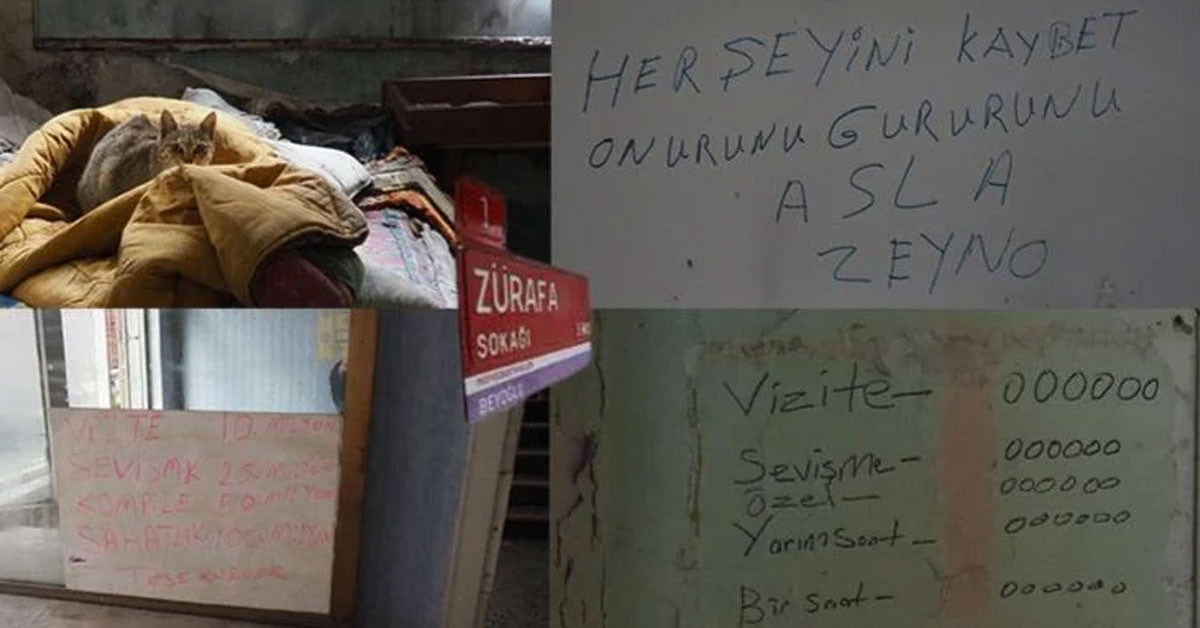 HERŞEYİNİ KAYBET
ONURUNU GURURUNU
ASLA
ZEYNO
1
ZÜRAFA
SOKAĞI
BEYOĞLU
VİZİTE 10 MİLYON
SEVİŞMK 25
KOMPLE 50 MİLYON
100
Vizite- 000000
Sevişme- 000000
özel- 000000
Yarım saat- 000000
Bir saat- 000000